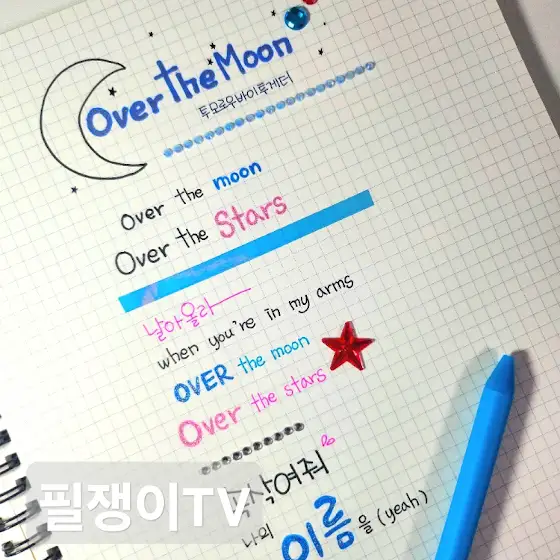 Over the Moon
투모로우바이투게더
Over the moon
Over the Stars
날아올라
when you're in my arms
OVER the moon
Over the stars
속삭여줘
나의 이름을 (yeah)
필쟁이TV